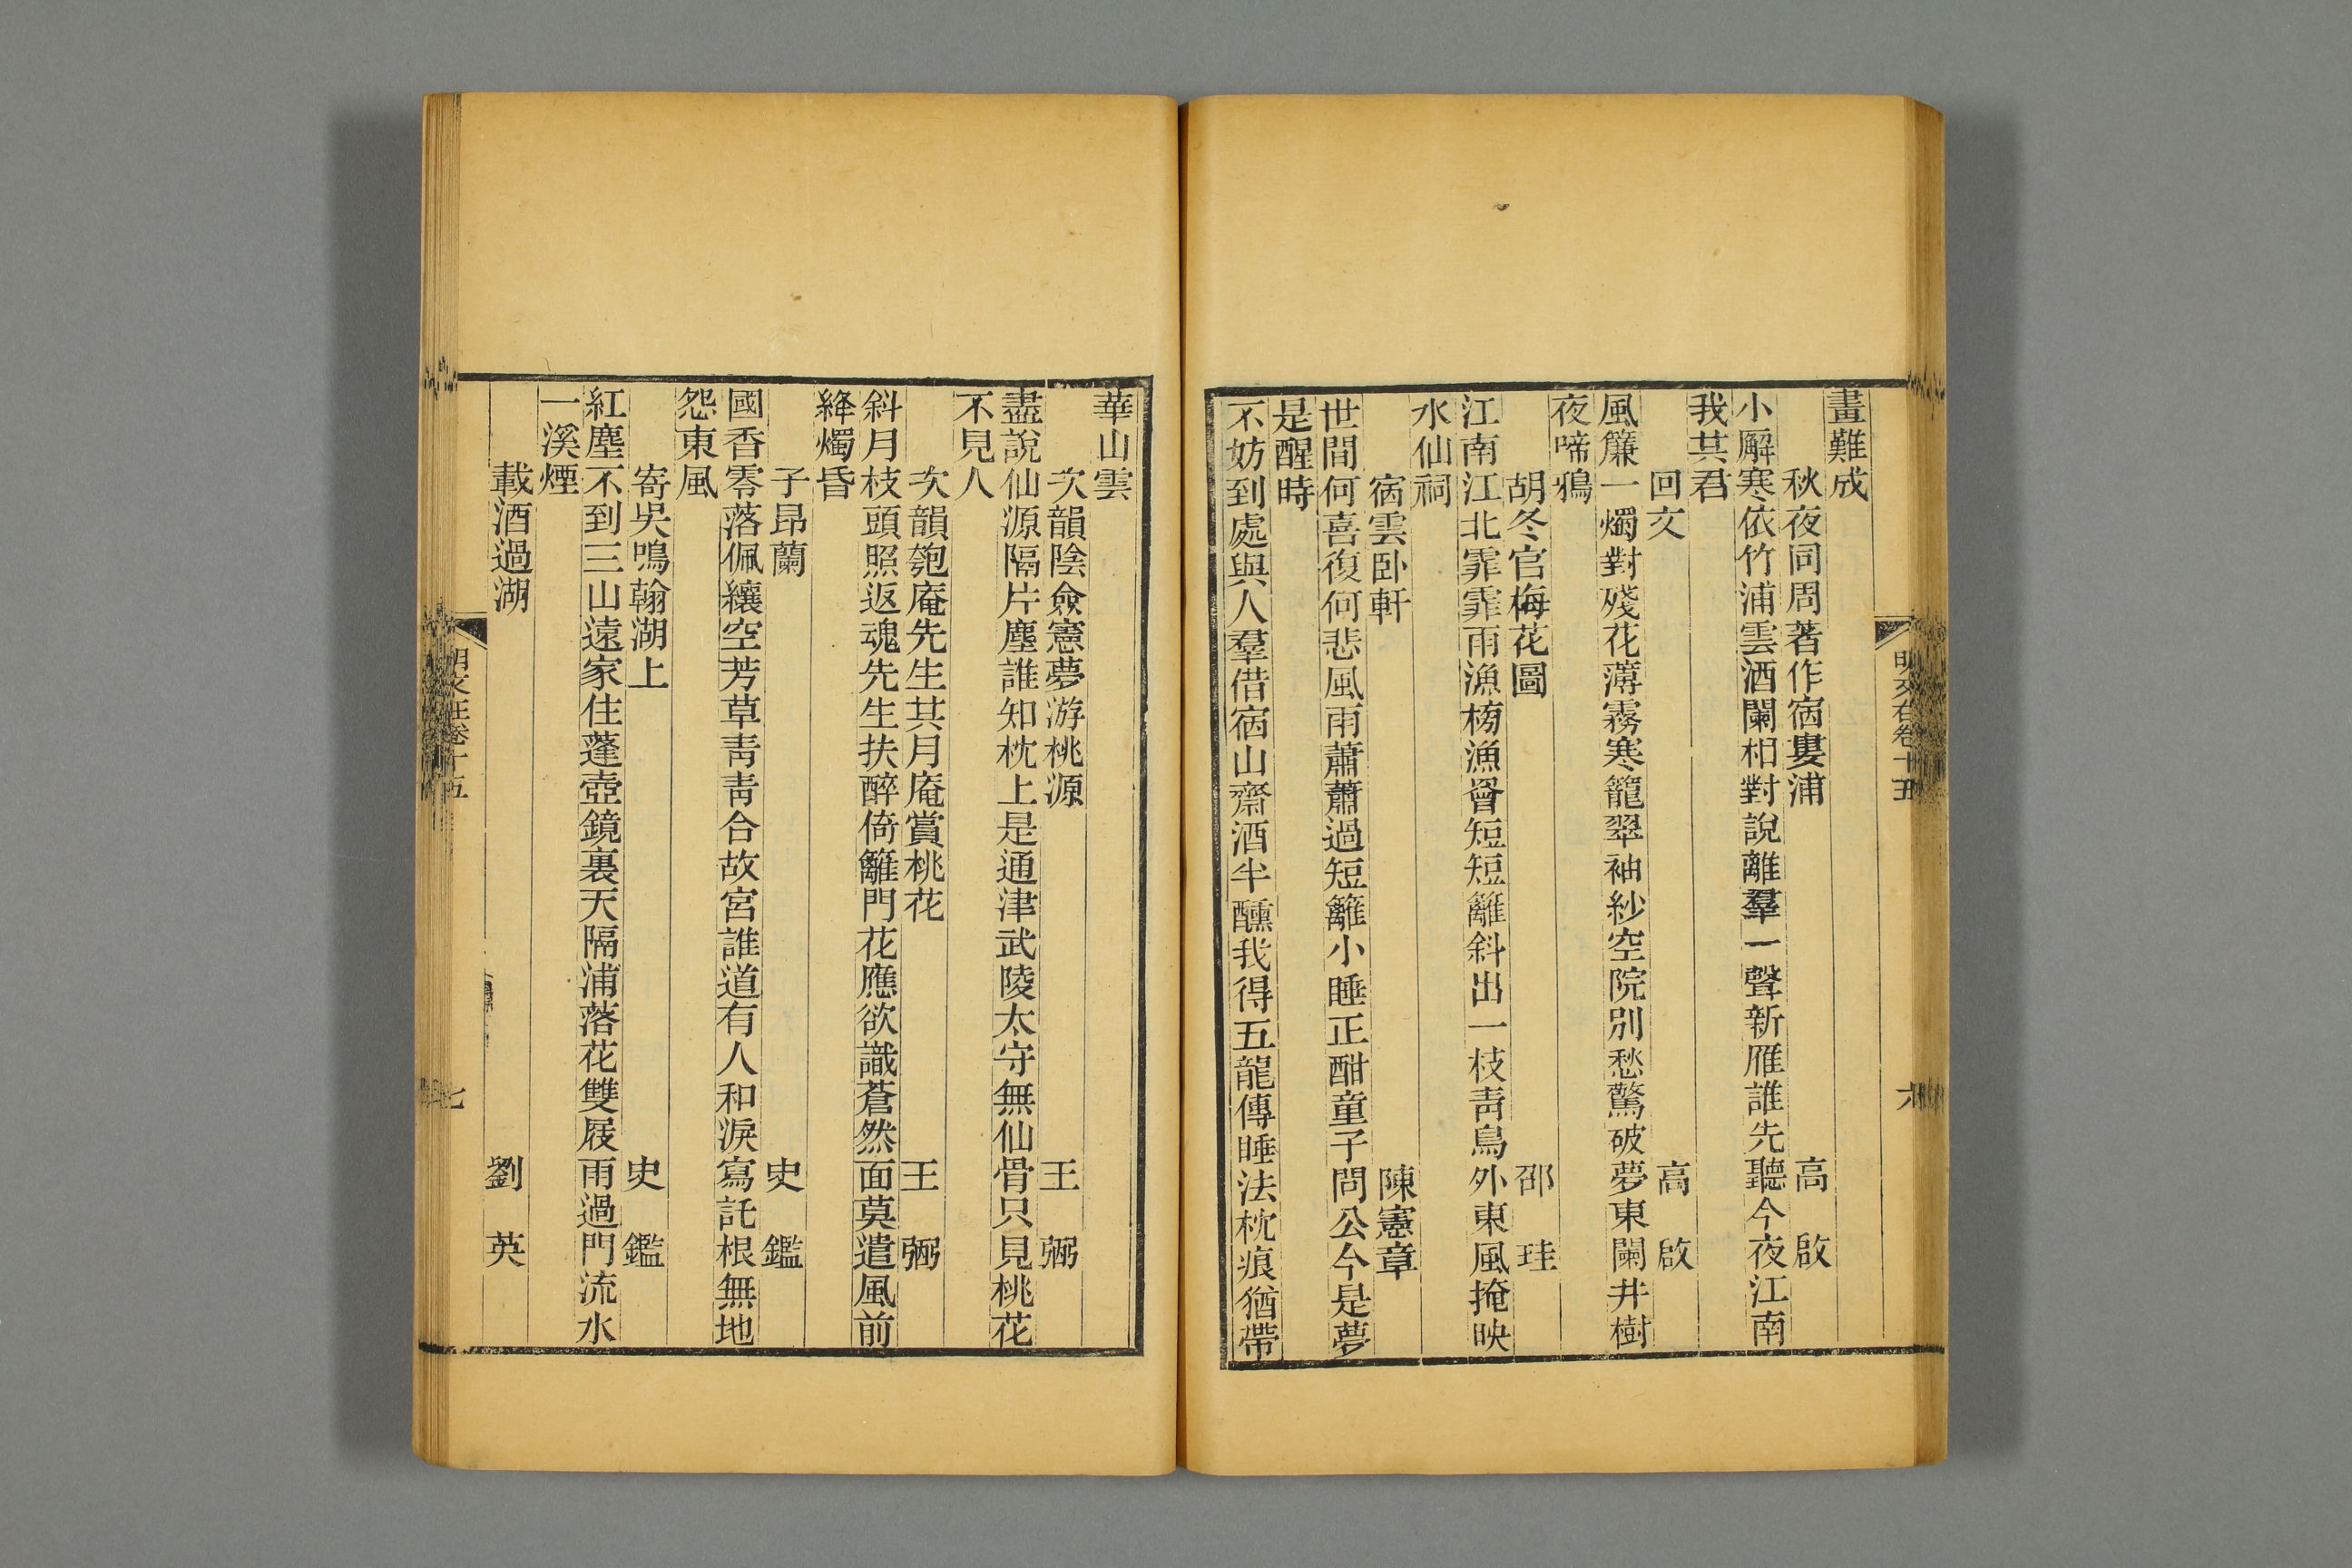 畫難成
秋夜同周著作宿婁浦 高 啟
小廨寒依竹浦雲酒闌相對說離羣一聲新雁誰先聽今夜江南
我共君
回文 高 啟
風簾一燭對殘花薄霧寒籠翠袖紗空院別愁驚破夢東闌井樹
夜啼鴉
胡冬官梅花圖 邵 珪
江南江北霏霏雨漁榜漁罾短短籬斜出一枝青鳥外東風掩映
水仙祠
宿雲卧軒 陳憲章
世間何喜復何悲風雨蕭蕭過短籬小睡正酣童子問公今是夢
是醒時
不妨到處與人羣借宿山齋酒半醺我得五龍傳睡法枕痕猶帶
明文在卷十五
六
華山雲
次韻陰僉憲夢游桃源 王 弼
盡說仙源隔片塵誰知枕上是通津武陵太守無仙骨只見桃花
不見人
次韻匏庵先生其月庵賞桃花 王 弼
斜月枝頭照返魂先生扶醉倚籬門花應欲識蒼然面莫遣風前
絳燭昏
子昂蘭 史 鑑
國香零落佩纕空芳草靑靑合故宮誰道有人和淚寫託根無地
怨東風
寄吳鳴翰湖上 史 鑑
紅塵不到三山遠家住蓬壺鏡裏天隔浦落花雙屐雨過門流水
一溪煙
載酒過湖 劉 英
明文在卷十五
七